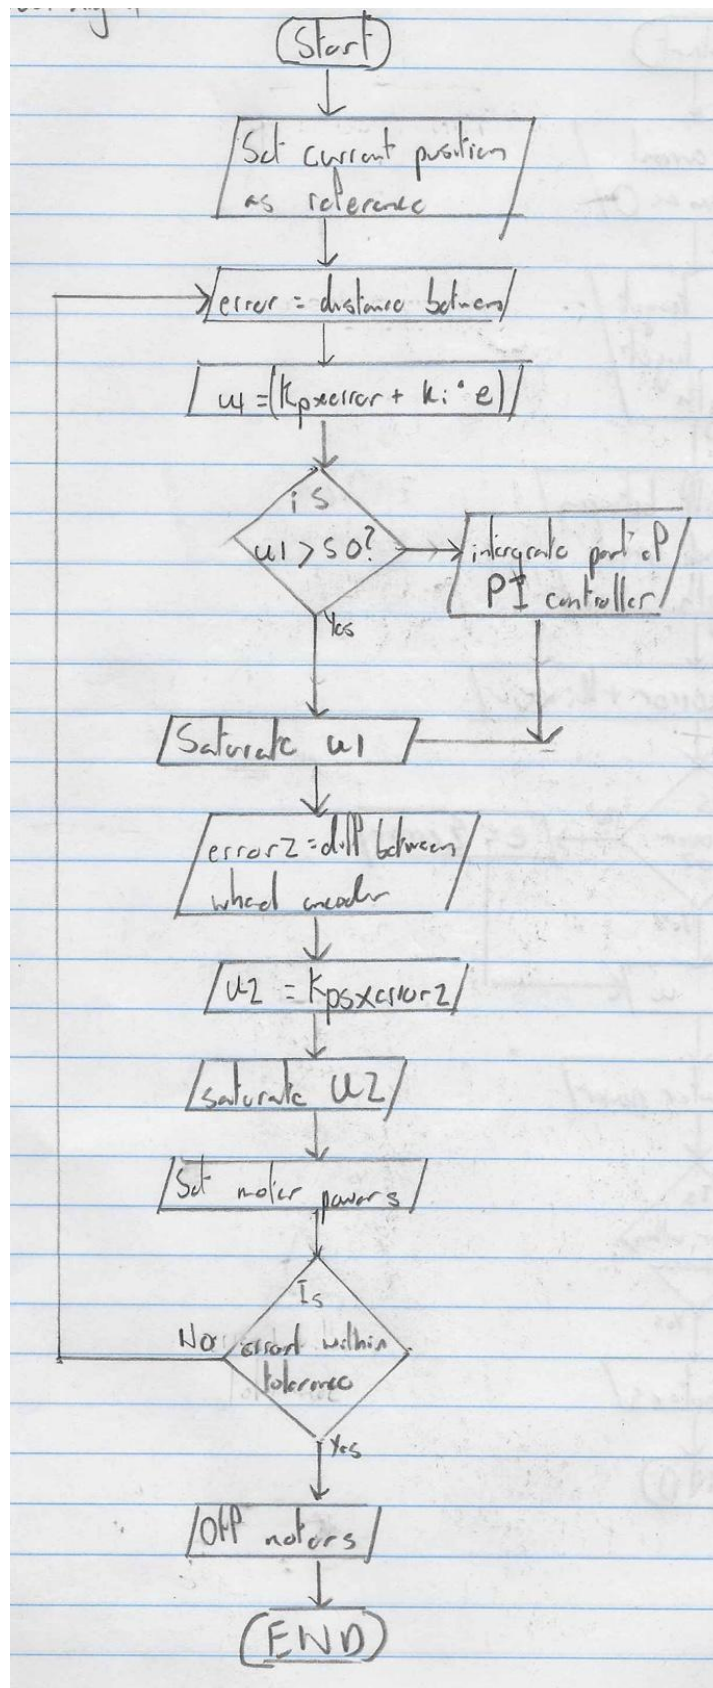 Start
Set current position
as reference
error = distance between
u1 = (Kpxerror + Ki * e)
is
u1 > 50?
intergrate part of
PI controller
Yes
Saturate u1
error2 = diff between
wheel encoder
u2 = Kpsxerror2
saturate u2
Set motor powers
Is
No
error within
tolerance
Yes
Off motors
END